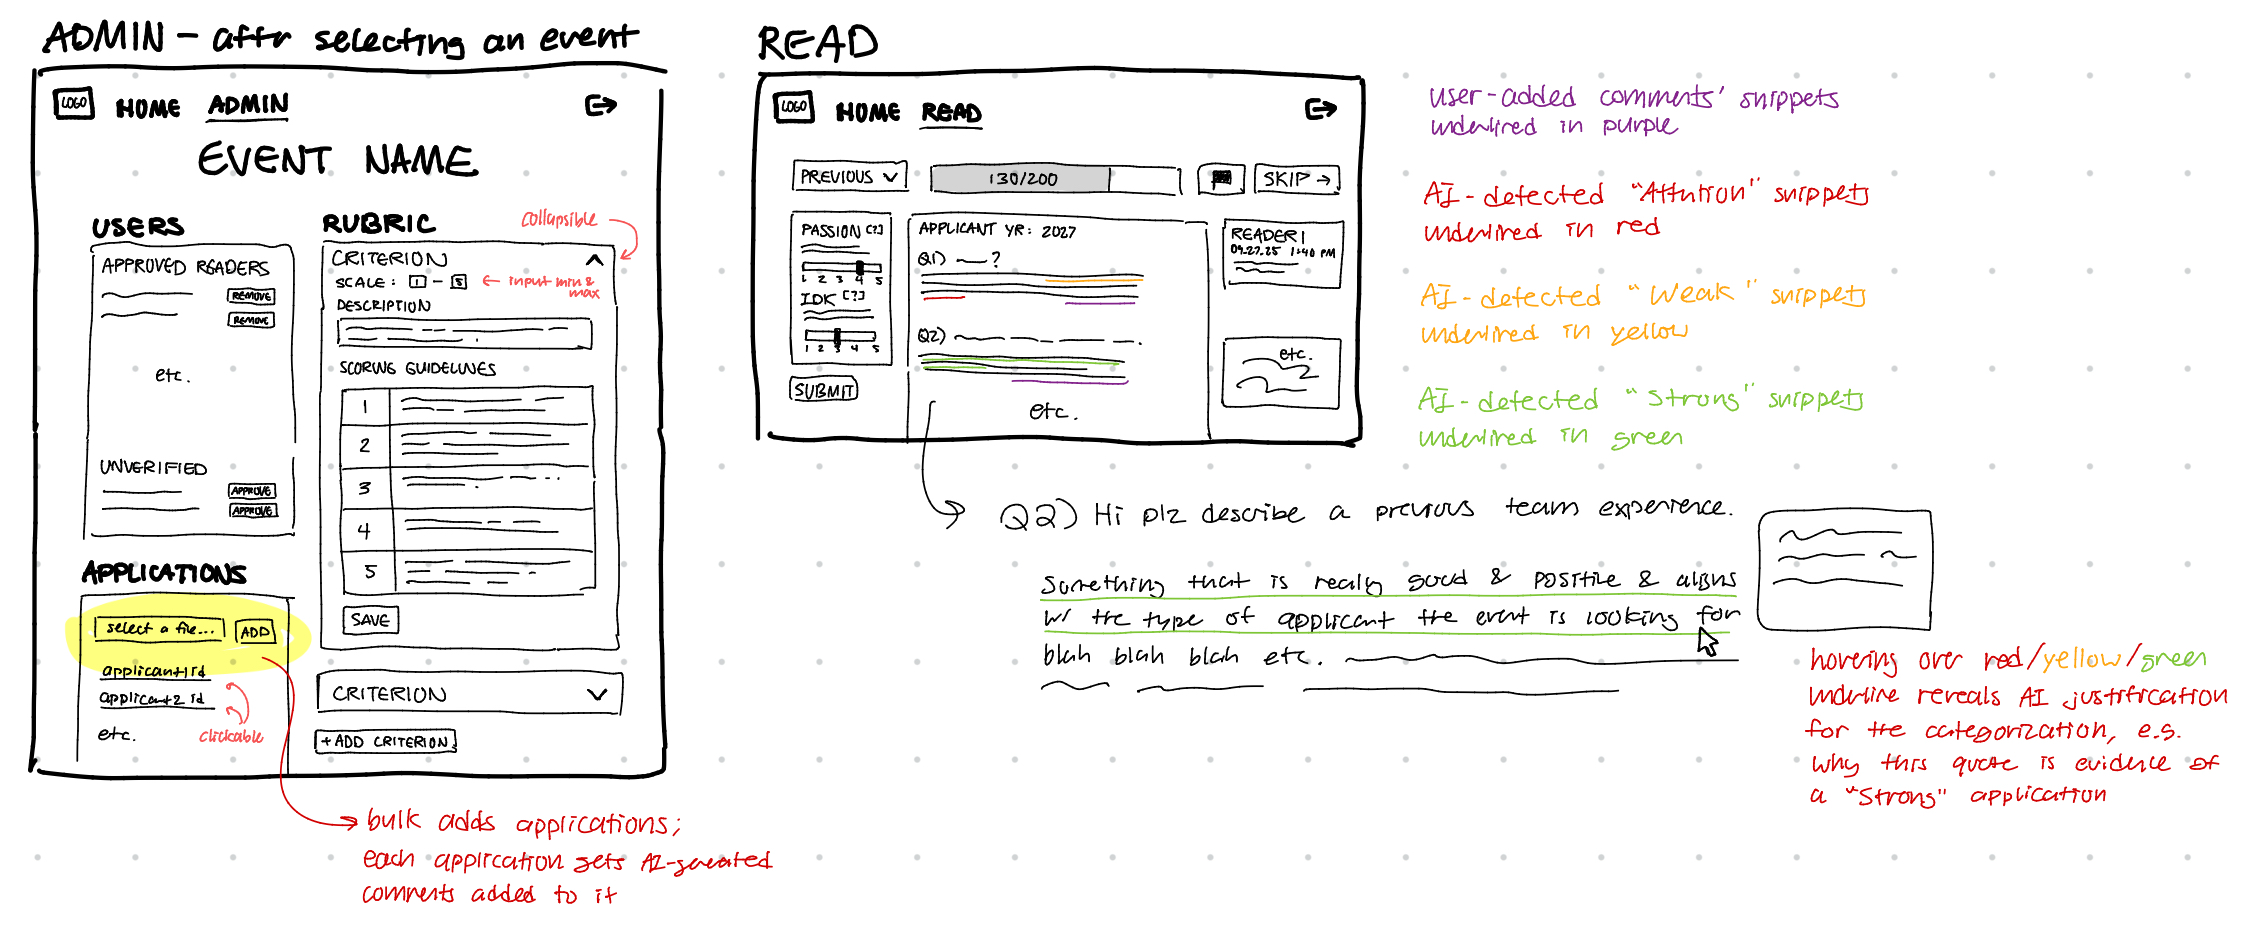 ADMIN - after selecting an event
LOGO HOME ADMIN
EVENT NAME
USERS
APPROVED READERS
REMOVE
REMOVE
etc.
UNVERIFIED
APPROVE
APPROVE
APPLICATIONS
select a file... ADD
applicant1 id
applicant2 id
etc.
clickable
RUBRIC
collapsible
CRITERION
SCALE: 1 - 5
← input min & max
DESCRIPTION
SCORING GUIDELINES
1
2
3
4
5
SAVE
CRITERION
+ ADD CRITERION
bulk adds applications;
each application gets AI-generated
comments added to it
READ
LOGO HOME READ
PREVIOUS
130/200
SKIP →
PASSION [?]
1 2 3 4 5
IDK [?]
1 2 3 4 5
SUBMIT
APPLICANT YR: 2027
Q1) ?
Q2)
etc.
READER 1
09.27.25 1:40 PM
etc.
user-added comments' snippets
underlined in purple
AI-detected "Attention" snippets
underlined in red
AI-detected "Weak" snippets
underlined in yellow
AI-detected "Strong" snippets
underlined in green
Q2) Hi plz describe a previous team experience.
Something that is really good & positive & aligns
w/ the type of applicant the event is looking for
blah blah blah etc.
hovering over red/yellow/green
underline reveals AI justification
for the categorization, e.g.
why this quote is evidence of
a "Strong" application